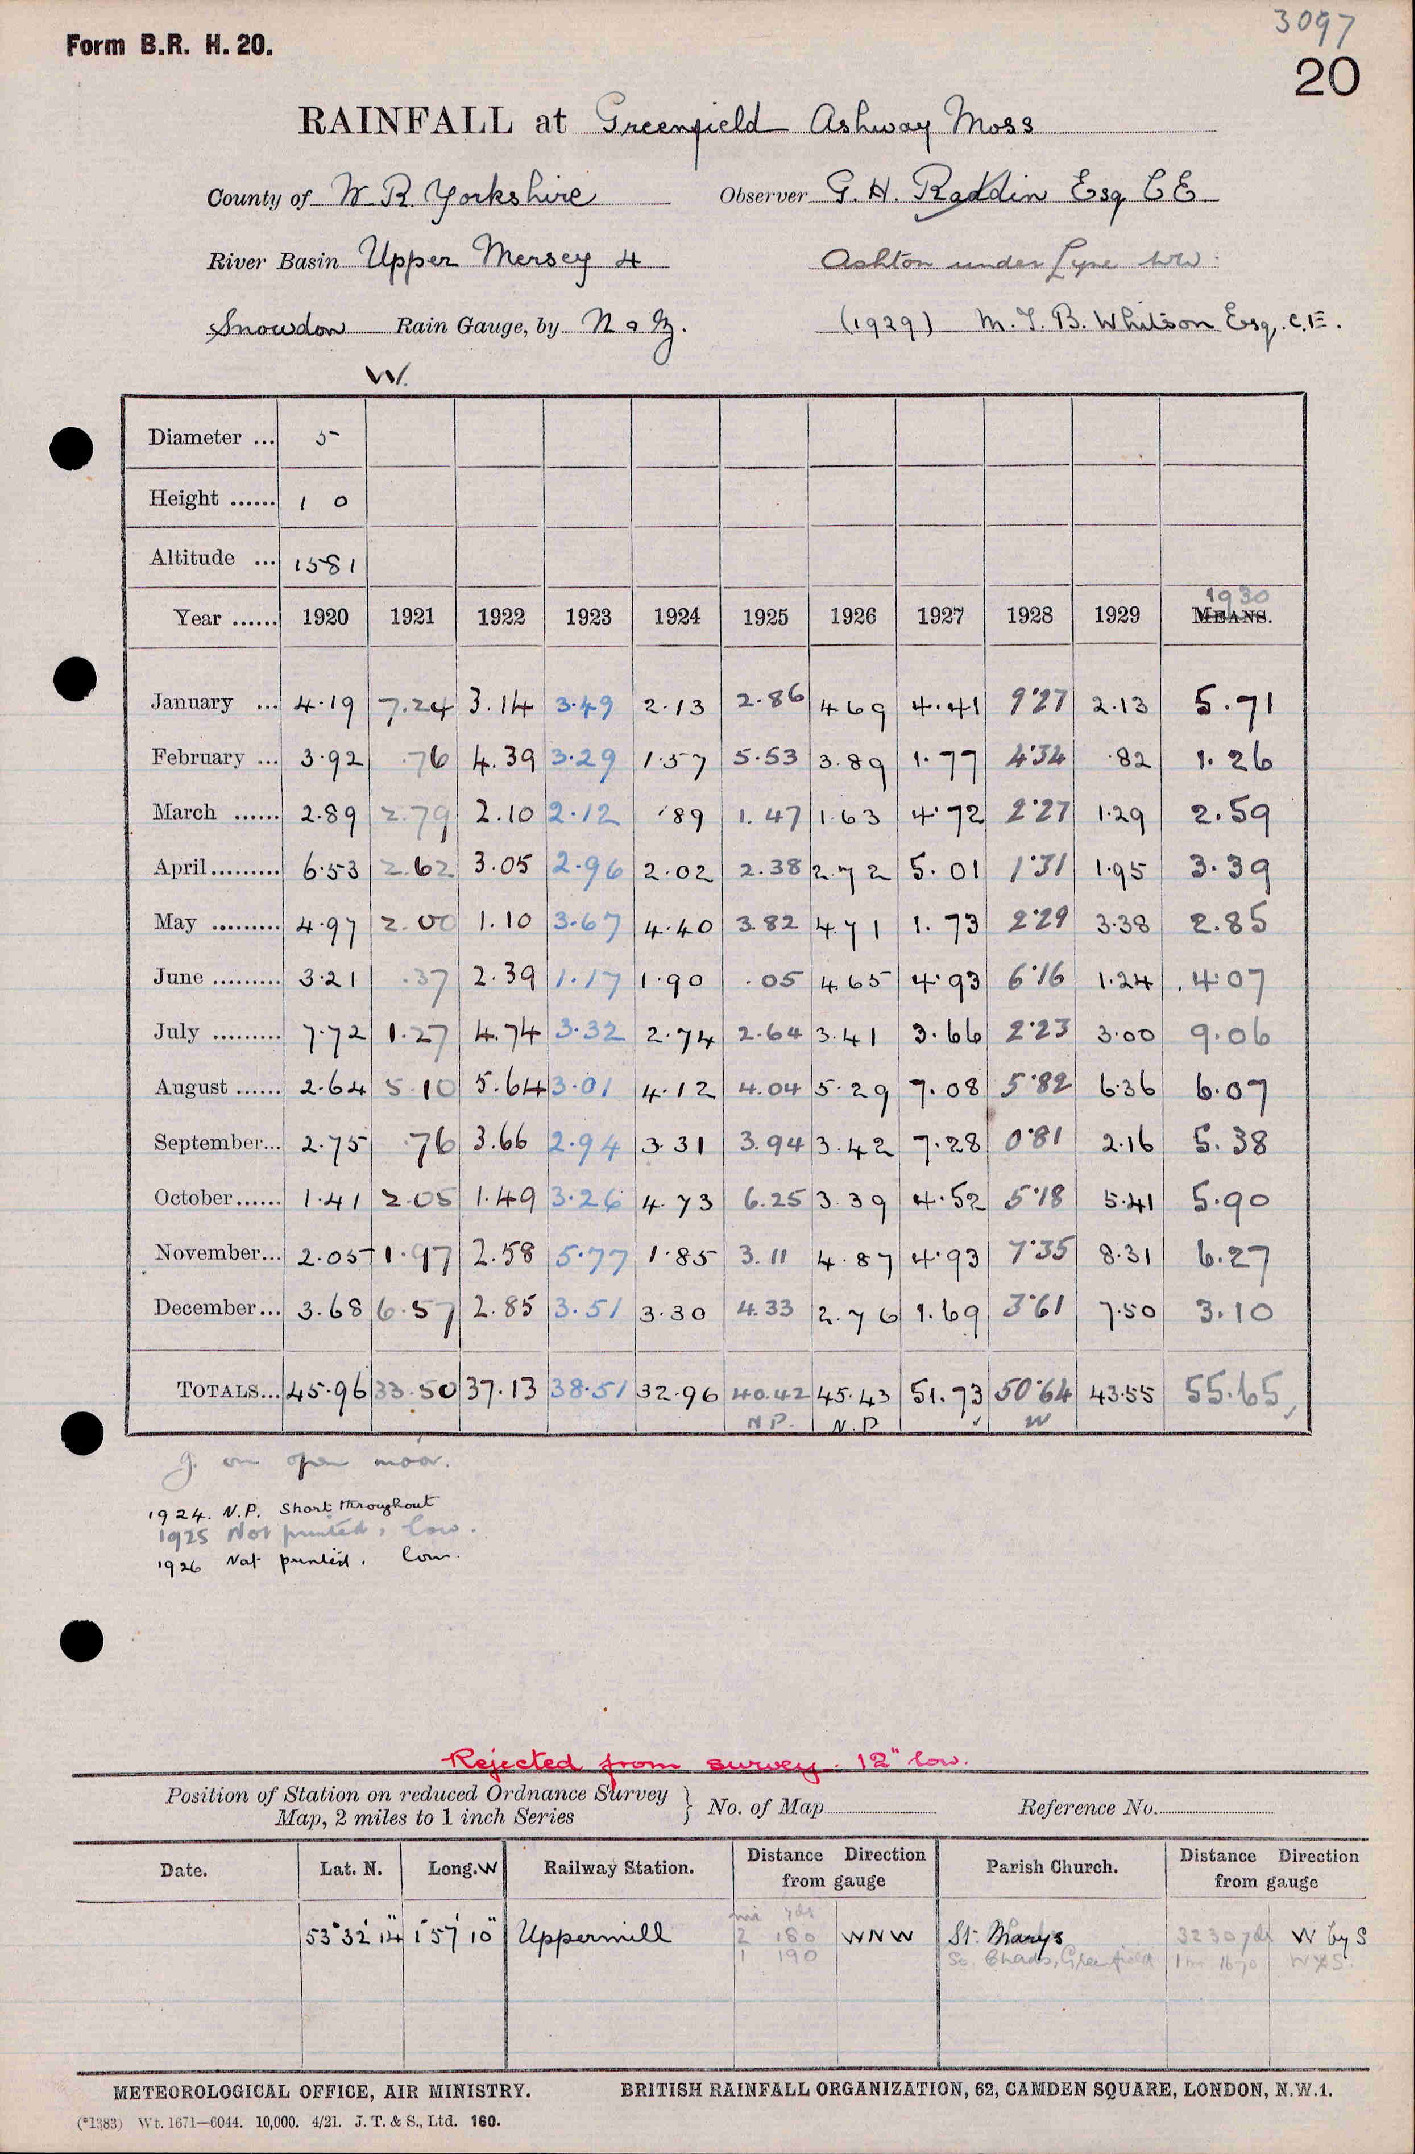 3097
Form B.R. H. 20.
20
RAINFALL at Greenfield Ashway Moss
County of W R Yorkshire Observer G. H. Raddin Esq CE
River Basin Upper Mersey 4 Ashton under Lyne WW
Snowdon Rain Gauge, by N & Z. (1929) M. T. B. Whitson Esq. C.E.
W.
Diameter ... 5
Height ...... 1 0
Altitude ... 1581
1930
Year ...... 1920 1921 1922 1923 1924 1925 1926 1927 1928 1929 MEANS.
January ... 4.19 7.24 3.14 3.49 2.13 2.86 4 69 4.41 9.27 2.13 5.71
February ... 3.92 .76 4.39 3.29 1.57 5.53 3.89 1.77 4.34 .82 1.26
March ...... 2.89 2.79 2.10 2.12 .89 1.47 1.63 4.72 2.27 1.29 2.59
April......... 6.53 2.62 3.05 2.96 2.02 2.38 2.72 5.01 1.31 1.95 3.39
May ......... 4.97 2.00 1.10 3.67 4.40 3.82 4.71 1.73 2.29 3.38 2.85
June ......... 3.21 .37 2.39 1.17 1.90 .05 4.65 4.93 6.16 1.24 4.07
July ......... 7.72 1.27 4.74 3.32 2.74 2.64 3.41 3.66 2.23 3.00 9.06
August ...... 2.64 5.10 5.64 3.01 4.12 4.04 5.29 7.08 5.82 6.36 6.07
September... 2.75 .76 3.66 2.94 3.31 3.94 3.42 7.28 0.81 2.16 5.38
October...... 1.41 2.05 1.49 3.26 4.73 6.25 3.39 4.52 5.18 5.41 5.90
November... 2.05 1.97 2.58 5.77 1.85 3.11 4.87 4.93 7.35 8.31 6.27
December... 3.68 6.57 2.85 3.51 3.30 4.33 2.76 1.69 3.61 7.50 3.10
TOTALS... 45.96 33.50 37.13 38.51 32.96 40.42 45.43 51.73 50.64 43.55 55.65
N P. N.P W
g. on open moor.
1924. N.P. Short throughout
1925 Not printed, low.
1926 Not printed. low.
Rejected from survey. 12" low.
Position of Station on reduced Ordnance Survey
Map, 2 miles to 1 inch Series } No. of Map Reference No.
Date. Lat. N. Long. W Railway Station. Distance Direction from gauge Parish Church. Distance Direction from gauge
mi yds
53° 32' 14" 1° 57' 10" Uppermill 2 180 WNW St. Marys 3230 yds W by S
1 190 St. Chads, Greenfield W x S.
METEOROLOGICAL OFFICE, AIR MINISTRY. BRITISH RAINFALL ORGANIZATION, 62, CAMDEN SQUARE, LONDON, N.W.1.
(*1383) Wt. 1671—6044. 10,000. 4/21. J. T. & S., Ltd. 160.